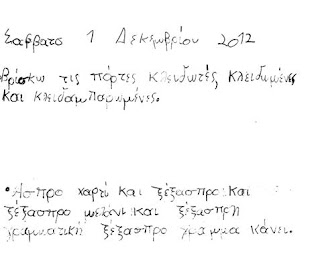 Σαββατο 1 Δεκεμβρίου 2012
Βρίσκω τις πόρτες κλειδωτές κλειδωμένες
και κλειδαμπαρωμένες.
•Ασπρο χαρτί και ξέξασπρο και
ξέξασπρο μελάνι και ξέξασπρη
γραμματική ξέξασπρο γράμμα κάνει.